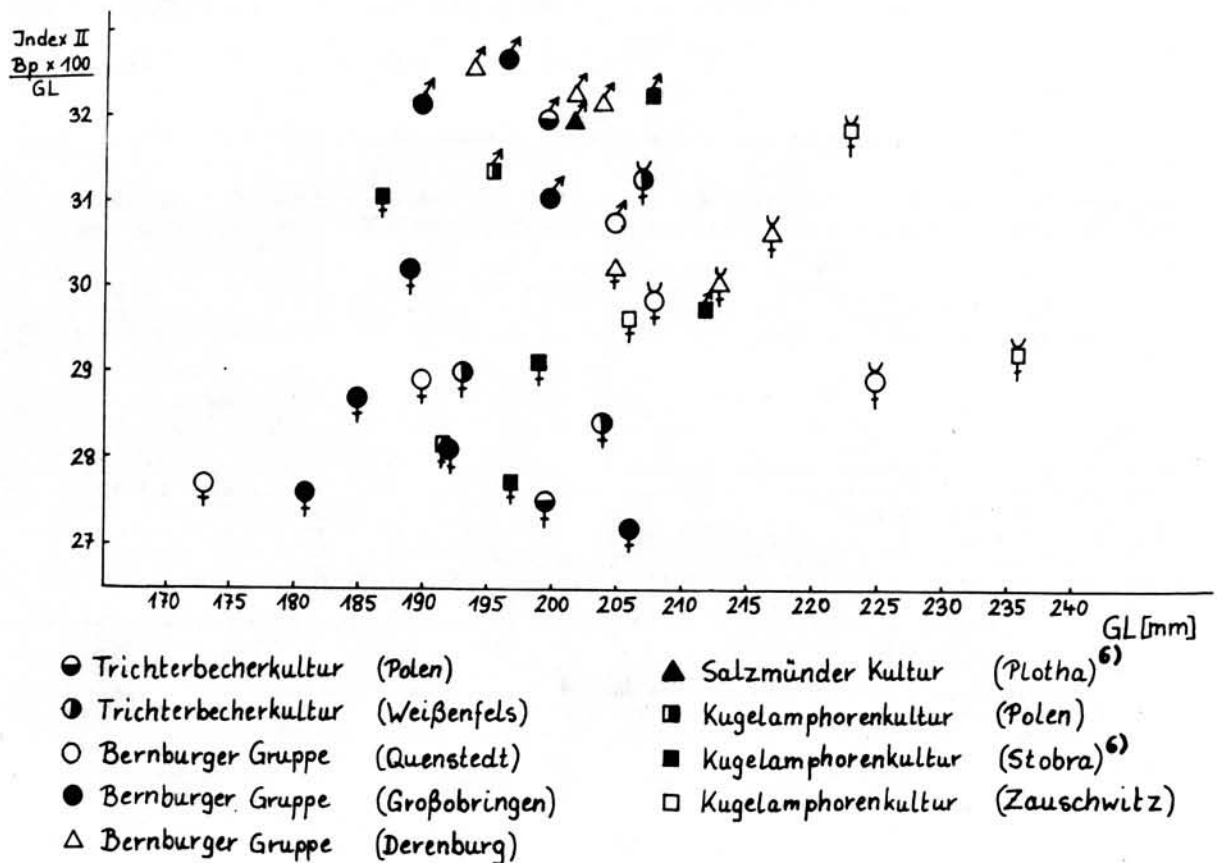 Index II
Bp x 100
GL
32
31
30
29
28
27
170 175 180 185 190 195 200 205 210 215 220 225 230 235 240
GL [mm]
Trichterbecherkultur (Polen)
Trichterbecherkultur (Weißenfels)
Bernburger Gruppe (Quenstedt)
Bernburger Gruppe (Großobringen)
Bernburger Gruppe (Derenburg)
Salzmünder Kultur (Plotha)6)
Kugelamphorenkultur (Polen)
Kugelamphorenkultur (Stobra)6)
Kugelamphorenkultur (Zauschwitz)